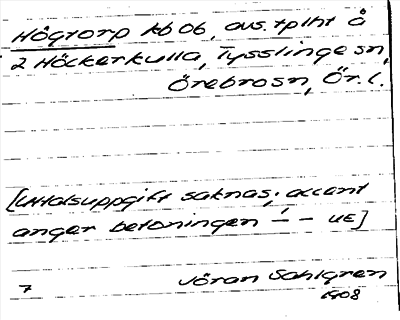 Högtorp kb 06, avs. + plht å
2 Höckerkulla, Tysslinge sn,
Örebro sn, Ör. l.
[Uttalsuppgift saknas; accent
anger betoningen –́ – UE]
7 Jöran Sahlgren
1908